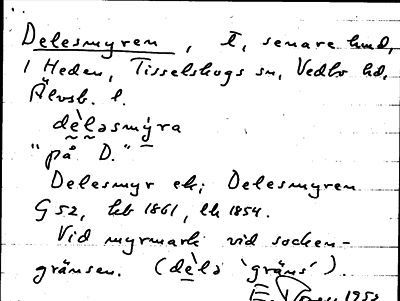 Delesmyren, t, senare hmd,
1 Heden, Tisselskogs sn, Vedbo hd,
Älvsb. l.
dèləsmẏra
"på D."
Delesmyr ek; Delesmyren
G 52, hb 1861, lk 1854.
Vid myrmark vid socken-
gränsen. (dèlə 'gräns').
1952